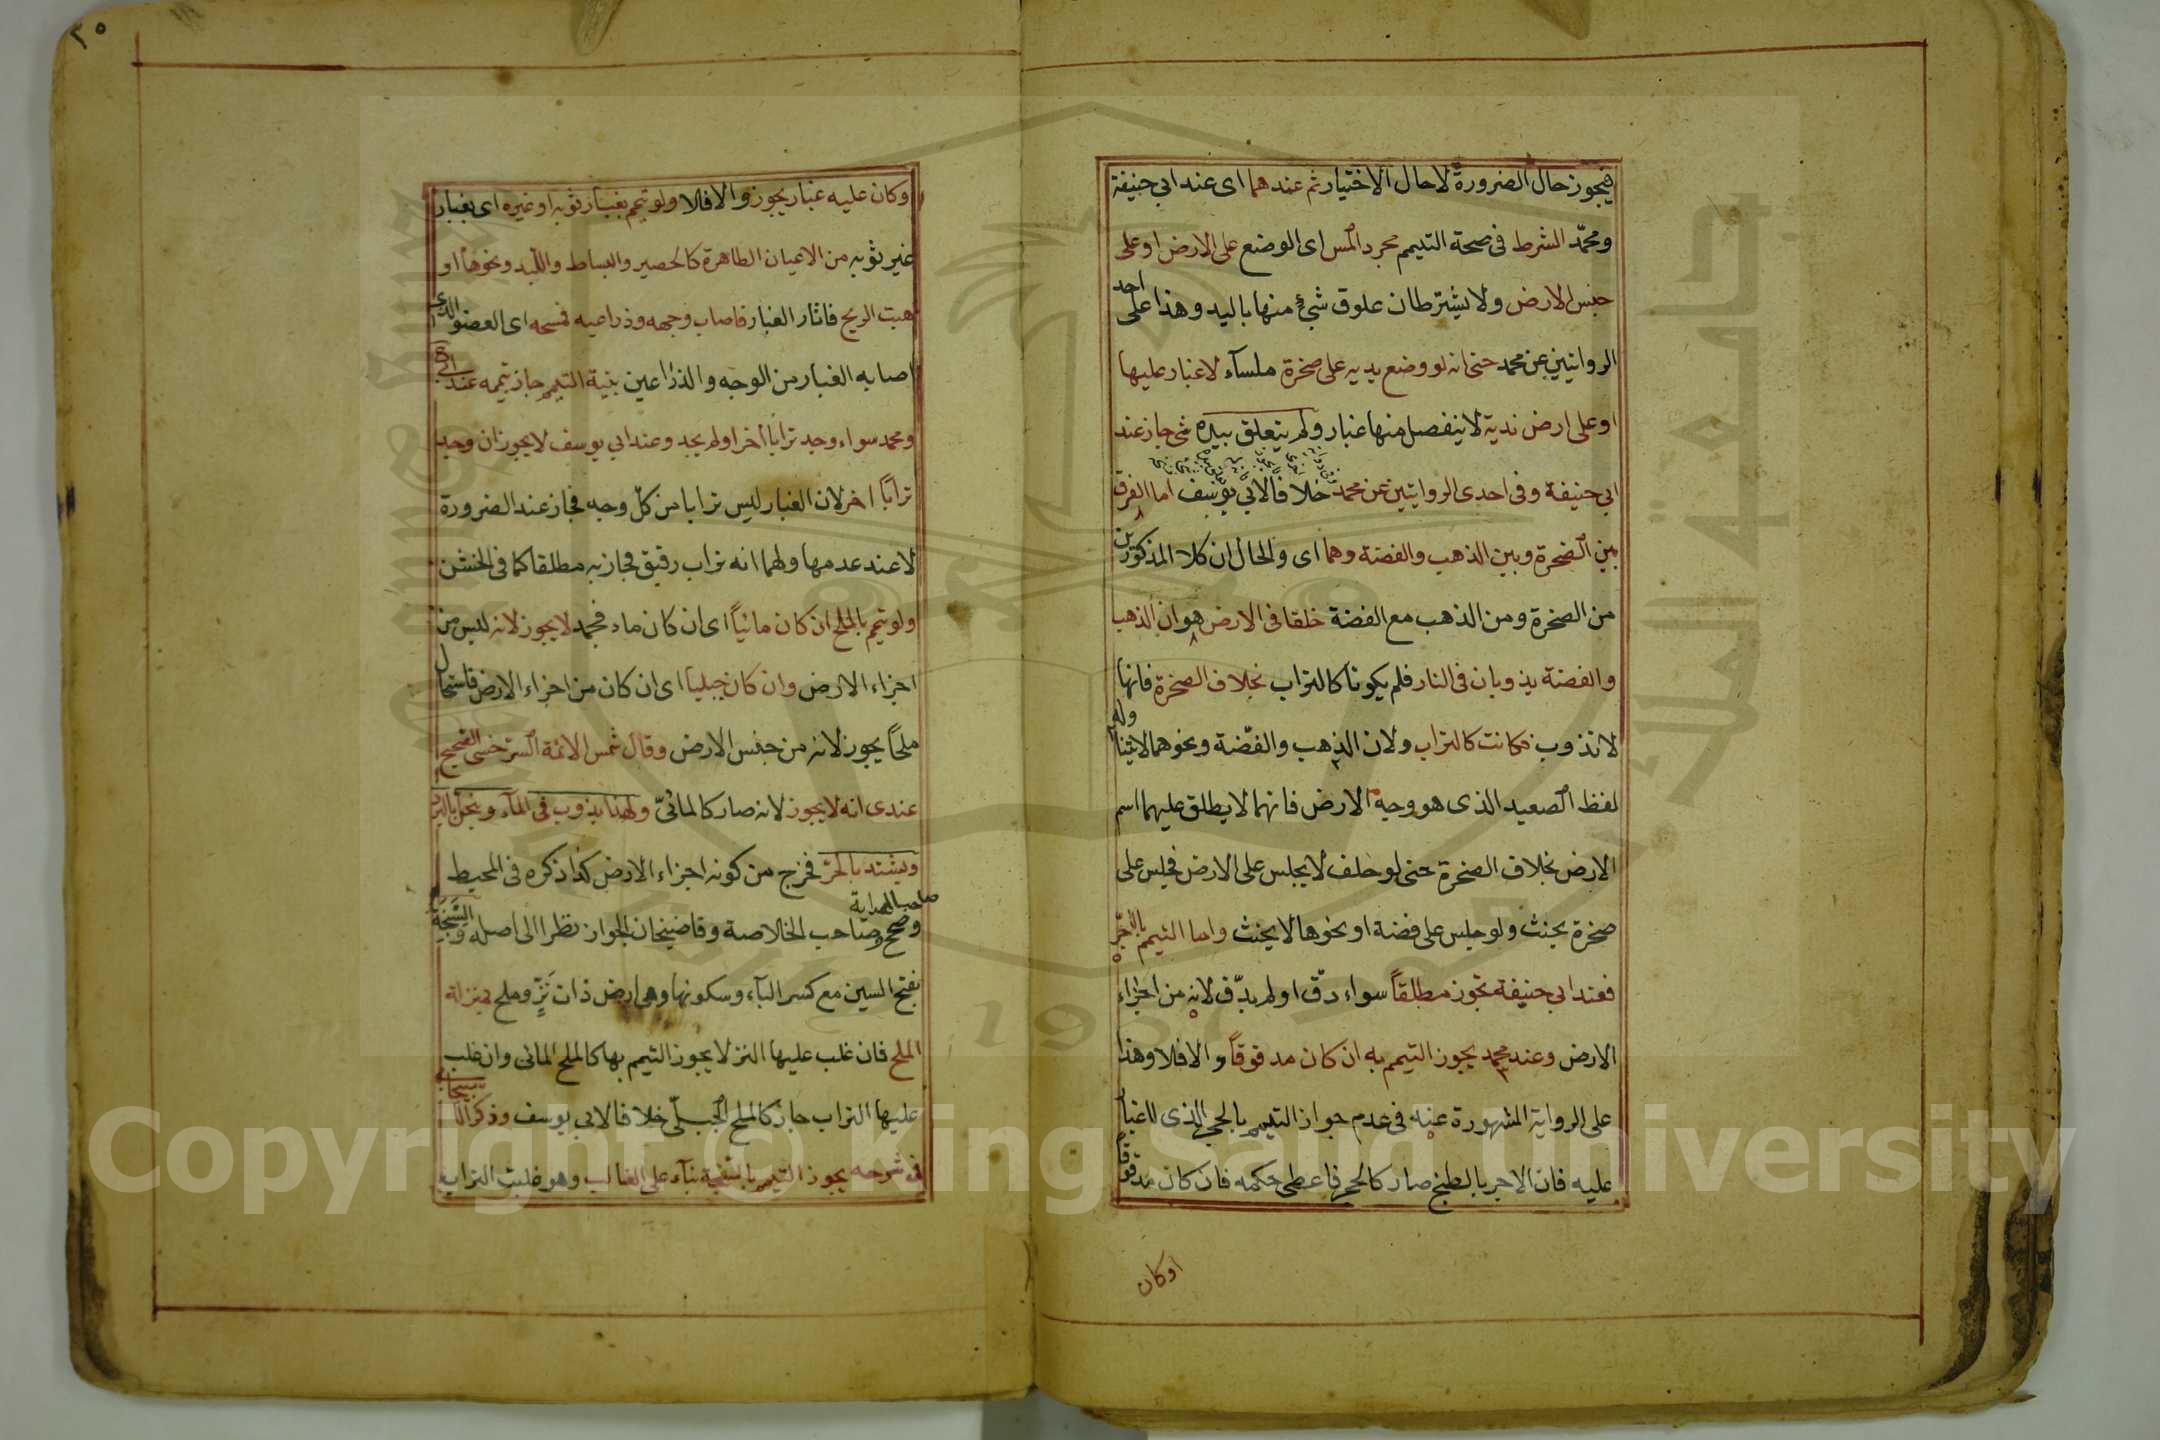 فيجوز حال الضرورة لا حال الاختيار ثم عندهما اى عند ابي حنيفة
ومحمّد الشرط فى صحة التيمم مجرد المس اى الوضع على الارض او على
جنس الارض ولا يشترطان علوق شئ منها باليد وهذا على احد
الروايتين عن محمد حتى انه لو وضع يديه على صخرة ملسآء لا غبار عليها
او على ارض ندية لا ينفصل منها غبار ولم يتعلق بيده شئ جاز عند
ابي حنيفة وفى احدى الروايتين عن محمد خلافا لابي يوسف اما الفرق
بين الصخرة وبين الذهب والفضة وهما اى والحال ان كلا المذكورين
من الصخرة ومن الذهب مع الفضة خلقا فى الارض هو ان الذهب
والفضة يذوبان فى النار فلم يكونا كالتراب بخلاف الصخرة فانها
لا تذوب فكانت كالتراب ولان الذهب والفضة ونحوهما لا يتناوله
لفظ الصعيد الذى هو وجه الارض فانهما لا يطلق عليهما اسم
الارض بخلاف الصخرة حتى لو حلف لا يجلس على الارض فجلس على
صخرة يحنث ولو جلس على فضة او نحوها لا يحنث واما التيمم بالآجرّ
فعند ابي حنيفة يجوز مطلقاً سواء دقّ او لم يدقّ لانه من اجزاء
الارض وعند محمد يجوز التيمم به ان كان مدقوقاً والا فلا وهذا
على الرواية المشهورة عنه فى عدم جواز التيمم بالحجر الذى لا غبار
عليه فان الاجر بالطبخ صار كالحجر فاعطى حكمه فان كان مدقوقاً
اوكان
٣٥
وكان عليه غبار يجوز والا فلا ولو تيمم بغبار ثوبه او غيره اى بغبار
غير ثوبه من الاعيان الطاهرة كالحصير والبساط واللبد ونحوها او
هبت الريح فاثار الغبار فاصاب وجهه وذراعيه فمسحه اى العضو الذى
اصابه الغبار من الوجه والذراعين بنية التيمم جاز تيممه عند
ومحمد سواء وجد ترابا اخر او لم يجد وعند ابي يوسف لا يجوز ان وجد
تراباً اخر لان الغبار ليس ترابا من كلّ وجه فجاز عند الضرورة
لا عند عدمها ولهما انه تراب رقيق فجاز به مطلقا كما فى الخشن
ولو تيمم بالملح ان كان مائياً اى ان كان ماء فجمد لا يجوز لانه ليس من
اجزاء الارض وان كان جبليا اى ان كان من اجزاء الارض فاستحال
ملحاً يجوز لانه من جنس الارض وقال شمس الائمة السرخسى الصحيح
عندى انه لا يجوز لانه صار كالمائىّ ولهذا يذوب فى المآء وينحل بالبرد
ويشتد بالحرّ فخرج من كونه اجزاء الارض كذا ذكره فى المحيط
وصحح صاحب الهداية وصاحب الخلاصة وقاضيخان الجواز نظرا الى اصله والسَّبَخَة
بفتح السين مع كسر البآء وسكونها وهى ارض ذات نَزٍّ وملح بمنزلة
الملح فان غلب عليها النز لا يجوز التيمم بها كالملح المائى وان غلب
عليها التراب جاز كالملح الجبلّى خلافا لابي يوسف وذكر
فى شرحه يجوز التيمم بالسبخة بنآء على الغالب وهو غلبت التراب
Copyright © King Saud University
1957